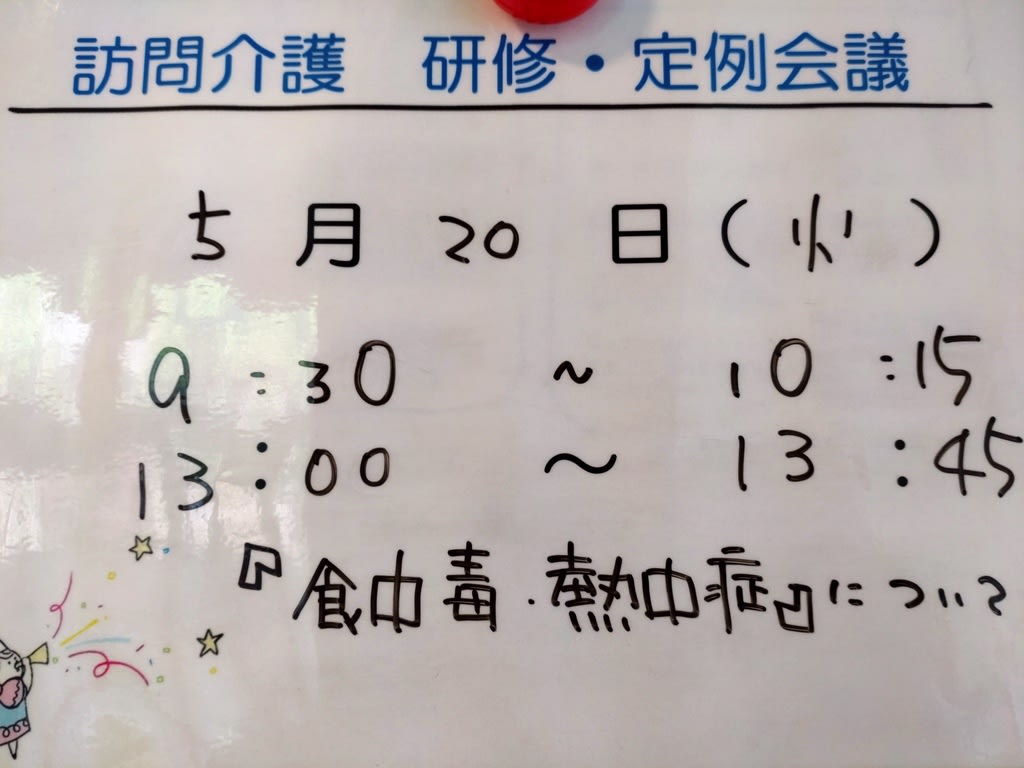 訪問介護 研修・定例会議
5月20日(火)
9:30 ~ 10:15
13:00 ~ 13:45
『食中毒・熱中症』について